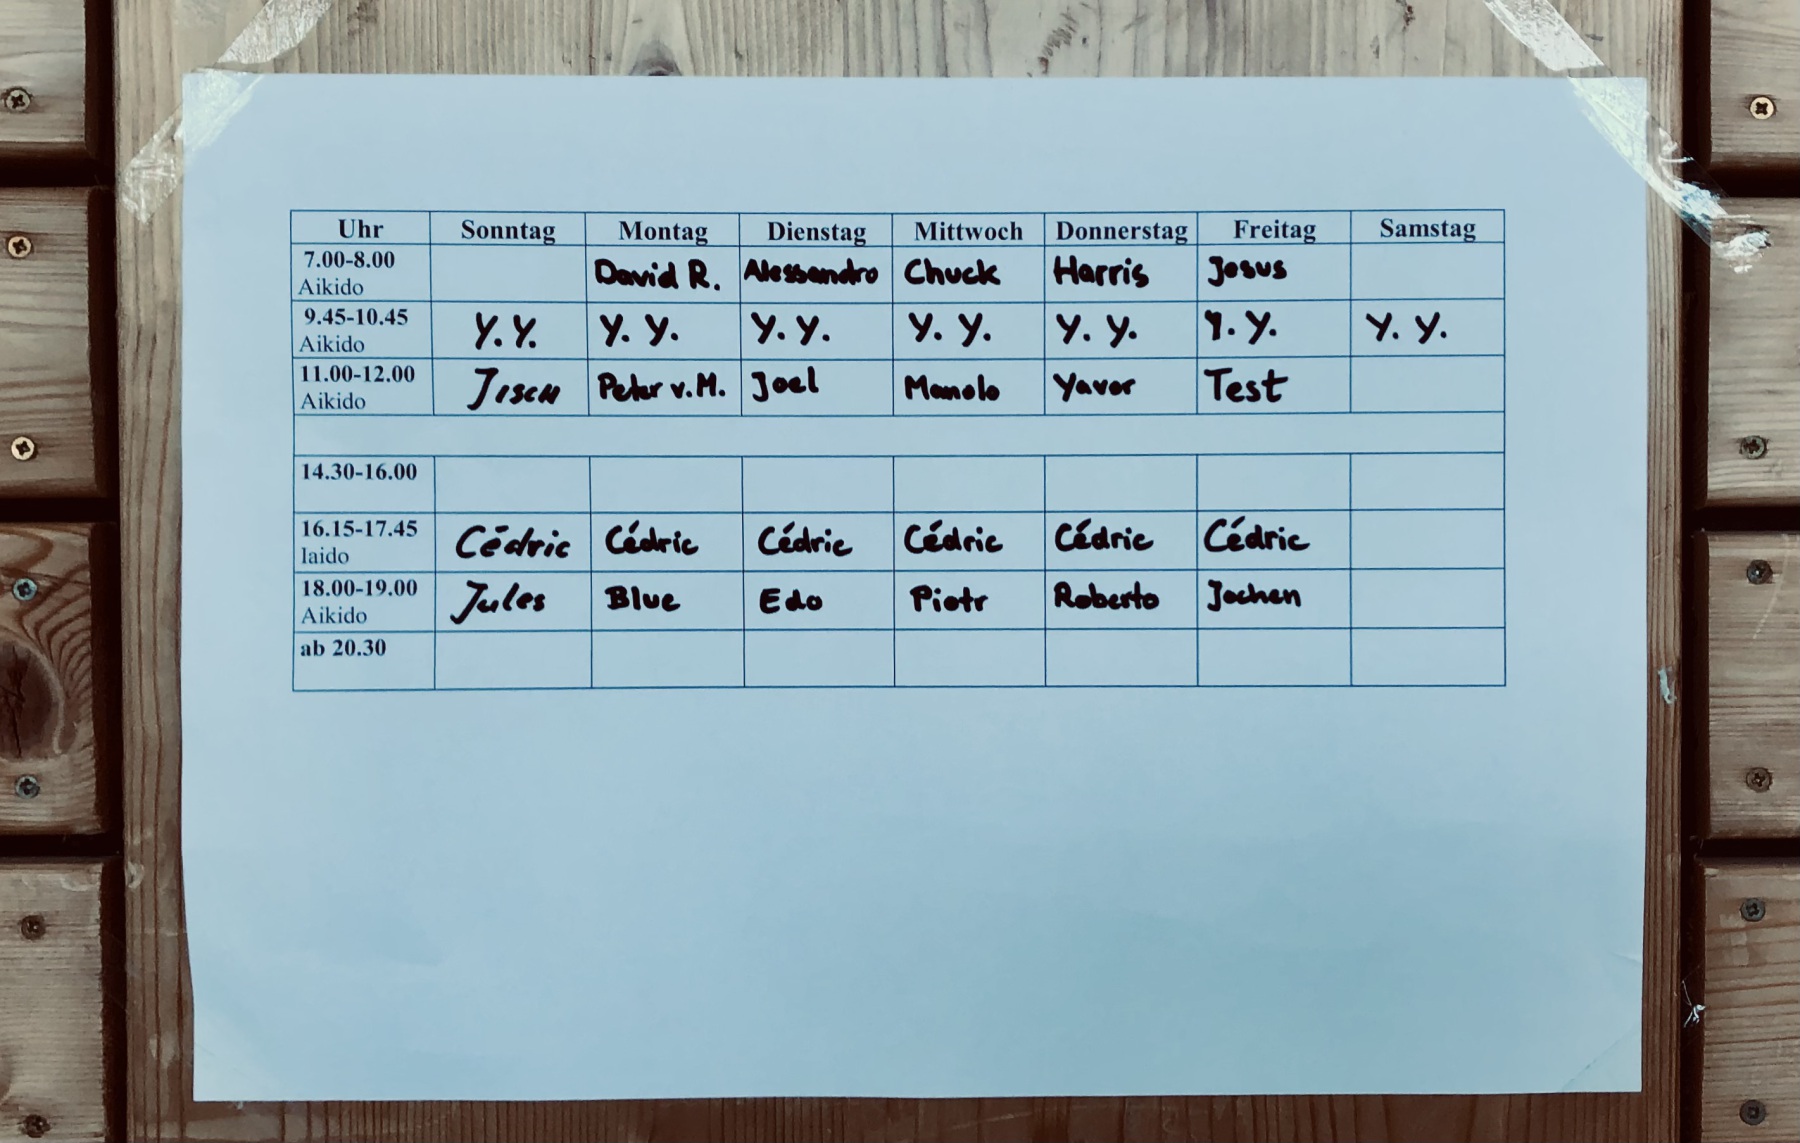 Uhr Sonntag Montag Dienstag Mittwoch Donnerstag Freitag Samstag
7.00-8.00
Aikido David R. Alessandro Chuck Harris Jesus
9.45-10.45
Aikido Y.Y. Y. Y. Y. Y. Y. Y. Y. Y. Y. Y. Y. Y.
11.00-12.00
Aikido Jisch Peter v.M. Joel Manolo Yavor Test
14.30-16.00
16.15-17.45
Iaido Cédric Cédric Cédric Cédric Cédric Cédric
18.00-19.00
Aikido Jules Blue Edo Piotr Roberto Jochen
ab 20.30